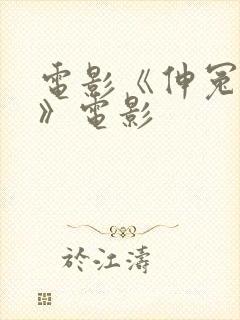 電影《伸冤
》電影
於江濤